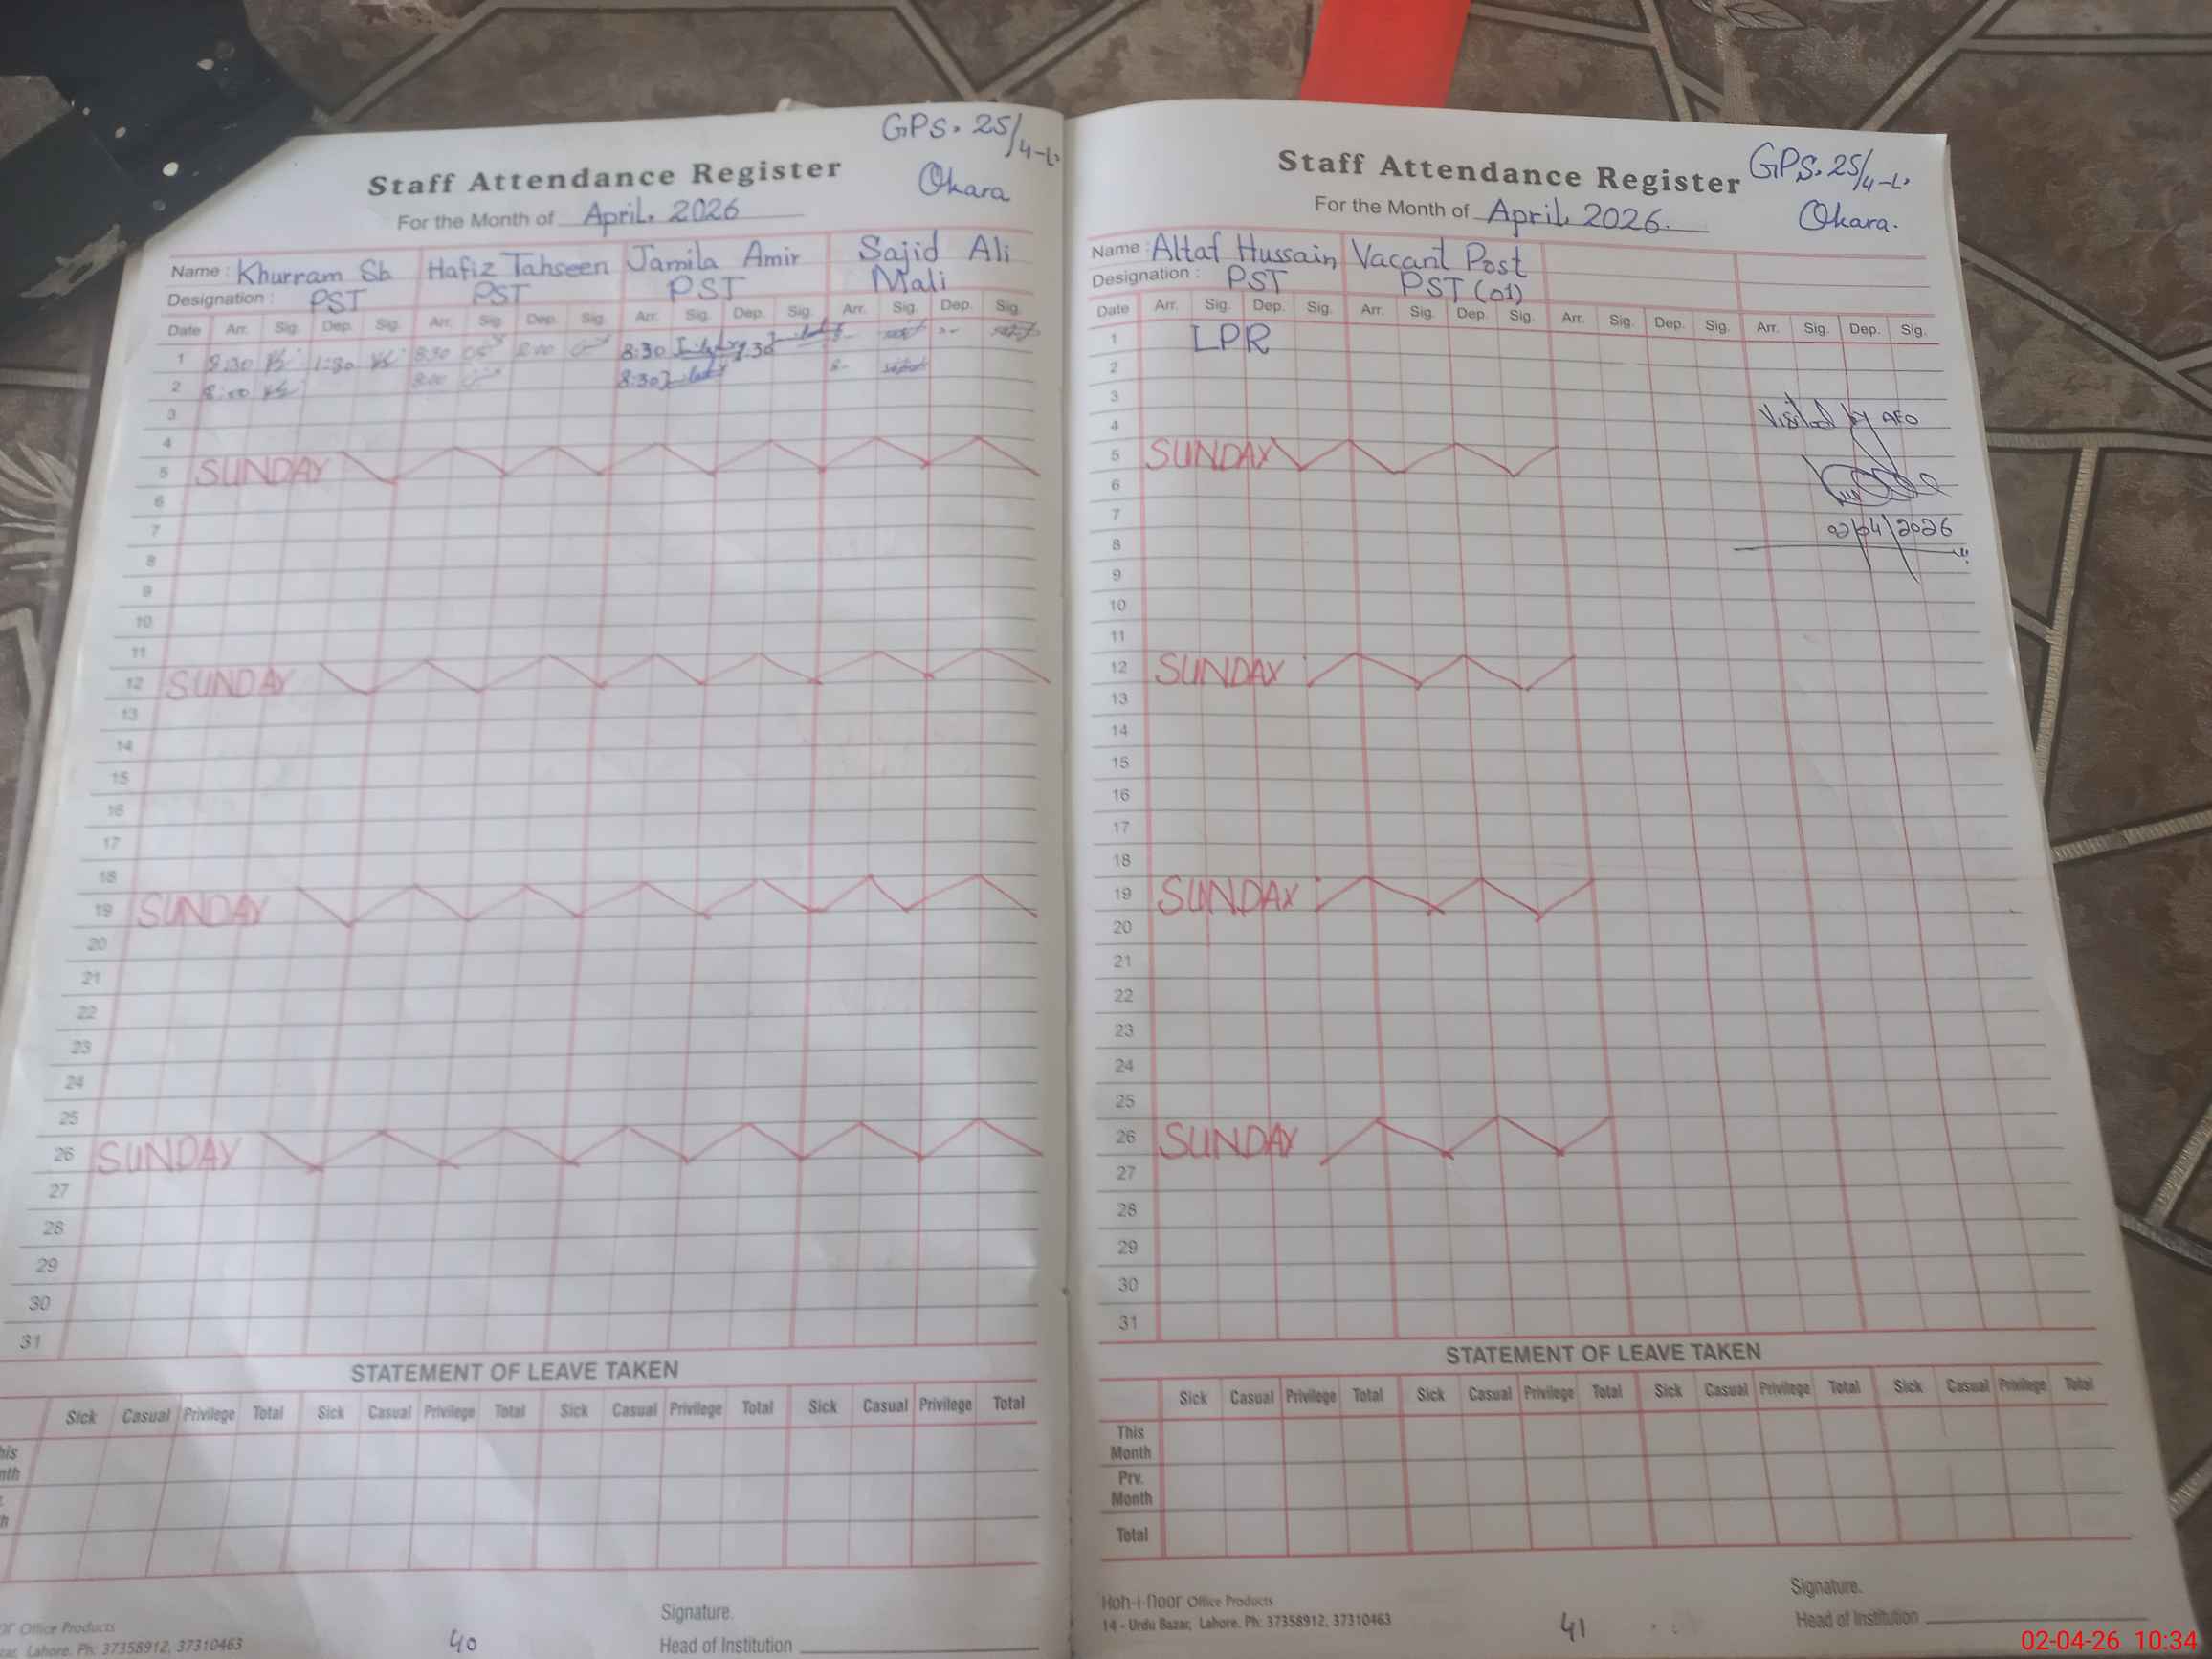 GPS. 25/4-L.
Staff Attendance Register
Okara
For the Month of April. 2026
Name : Khurram Sb Hafiz Tahseen Jamila Amir Sajid Ali
Designation : PST PST PST Mali
Date Arr. Sig. Dep. Sig. Arr. Sig. Dep. Sig. Arr. Sig. Dep. Sig. Arr. Sig. Dep. Sig.
1 8:30 1:30 8:30 8:30
2 8:00 8:00 8:30
3
4
5 SUNDAY
6
7
8
9
10
11
12 SUNDAY
13
14
15
16
17
18
19 SUNDAY
20
21
22
23
24
25
26 SUNDAY
27
28
29
30
31
STATEMENT OF LEAVE TAKEN
Sick Casual Privilege Total Sick Casual Privilege Total Sick Casual Privilege Total Sick Casual Privilege Total
Office Products
Lahore. Ph: 37358912, 37310463
40
Signature.
Head of Institution
GPS. 25/4-L.
Staff Attendance Register
Okara.
For the Month of April, 2026.
Name : Altaf Hussain Vacant Post
Designation : PST PST (01)
Date Arr. Sig. Dep. Sig. Arr. Sig. Dep. Sig. Arr. Sig. Dep. Sig. Arr. Sig. Dep. Sig.
1 LPR
2
3
Visited by AEO
4
5 SUNDAY
6
7
02/04/2026
8
9
10
11
12 SUNDAY
13
14
15
16
17
18
19 SUNDAY
20
21
22
23
24
25
26 SUNDAY
27
28
29
30
31
STATEMENT OF LEAVE TAKEN
Sick Casual Privilege Total Sick Casual Privilege Total Sick Casual Privilege Total Sick Casual Privilege Total
This Month
Prv. Month
Total
Koh-i-noor Office Products
14 - Urdu Bazar, Lahore. Ph: 37358912, 37310463
41
Signature.
Head of Institution
02-04-26 10:34